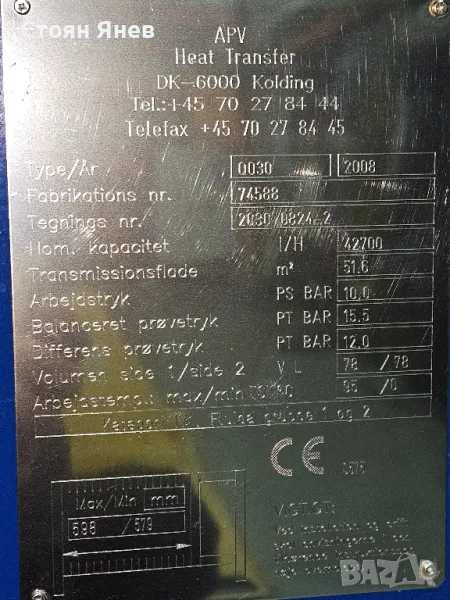 Стоян Янев
APV
Heat Transfer
DK-6000 Kolding
Tel.:+45 70 27 84 44
Telefax +45 70 27 84 45
Type/År 0030 2008
Fabrikations nr. 74588
Tegnings nr. 2030/0824-2
Nom. kapacitet l/H 42700
Transmissionsflade m² 51.6
Arbejdstryk PS BAR 10.0
Balanceret prøvetryk PT BAR 15.5
Differens prøvetryk PT BAR 12.0
Volumen side 1/side 2 V L 78 /78
Arbejdstemp. max/min TS °C 95 /0
Kategori IV, Fluida gruppe 1 og 2
CE
Max/Min mm
598 /579
Ved installation og drift
BAZAR